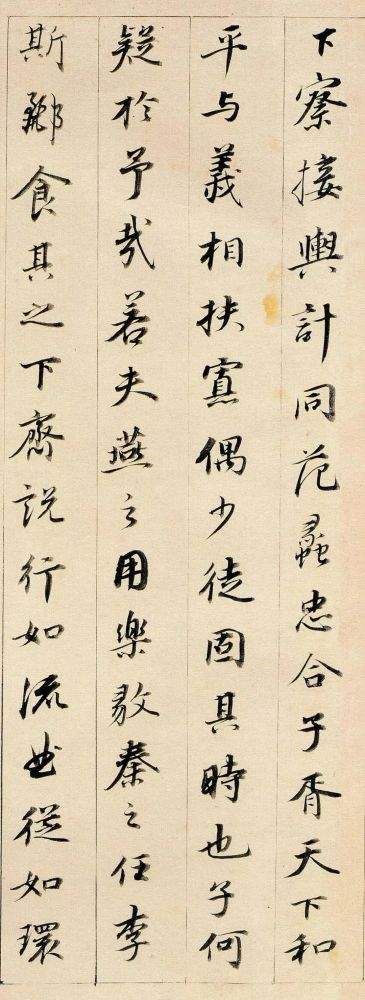 下察接輿計同范蠡忠合子胥天下和
平与義相扶寡偶少徒固其時也子何
疑於予哉若夫燕之用樂毅秦之任李
斯酈食其之下齊説行如流曲從如環